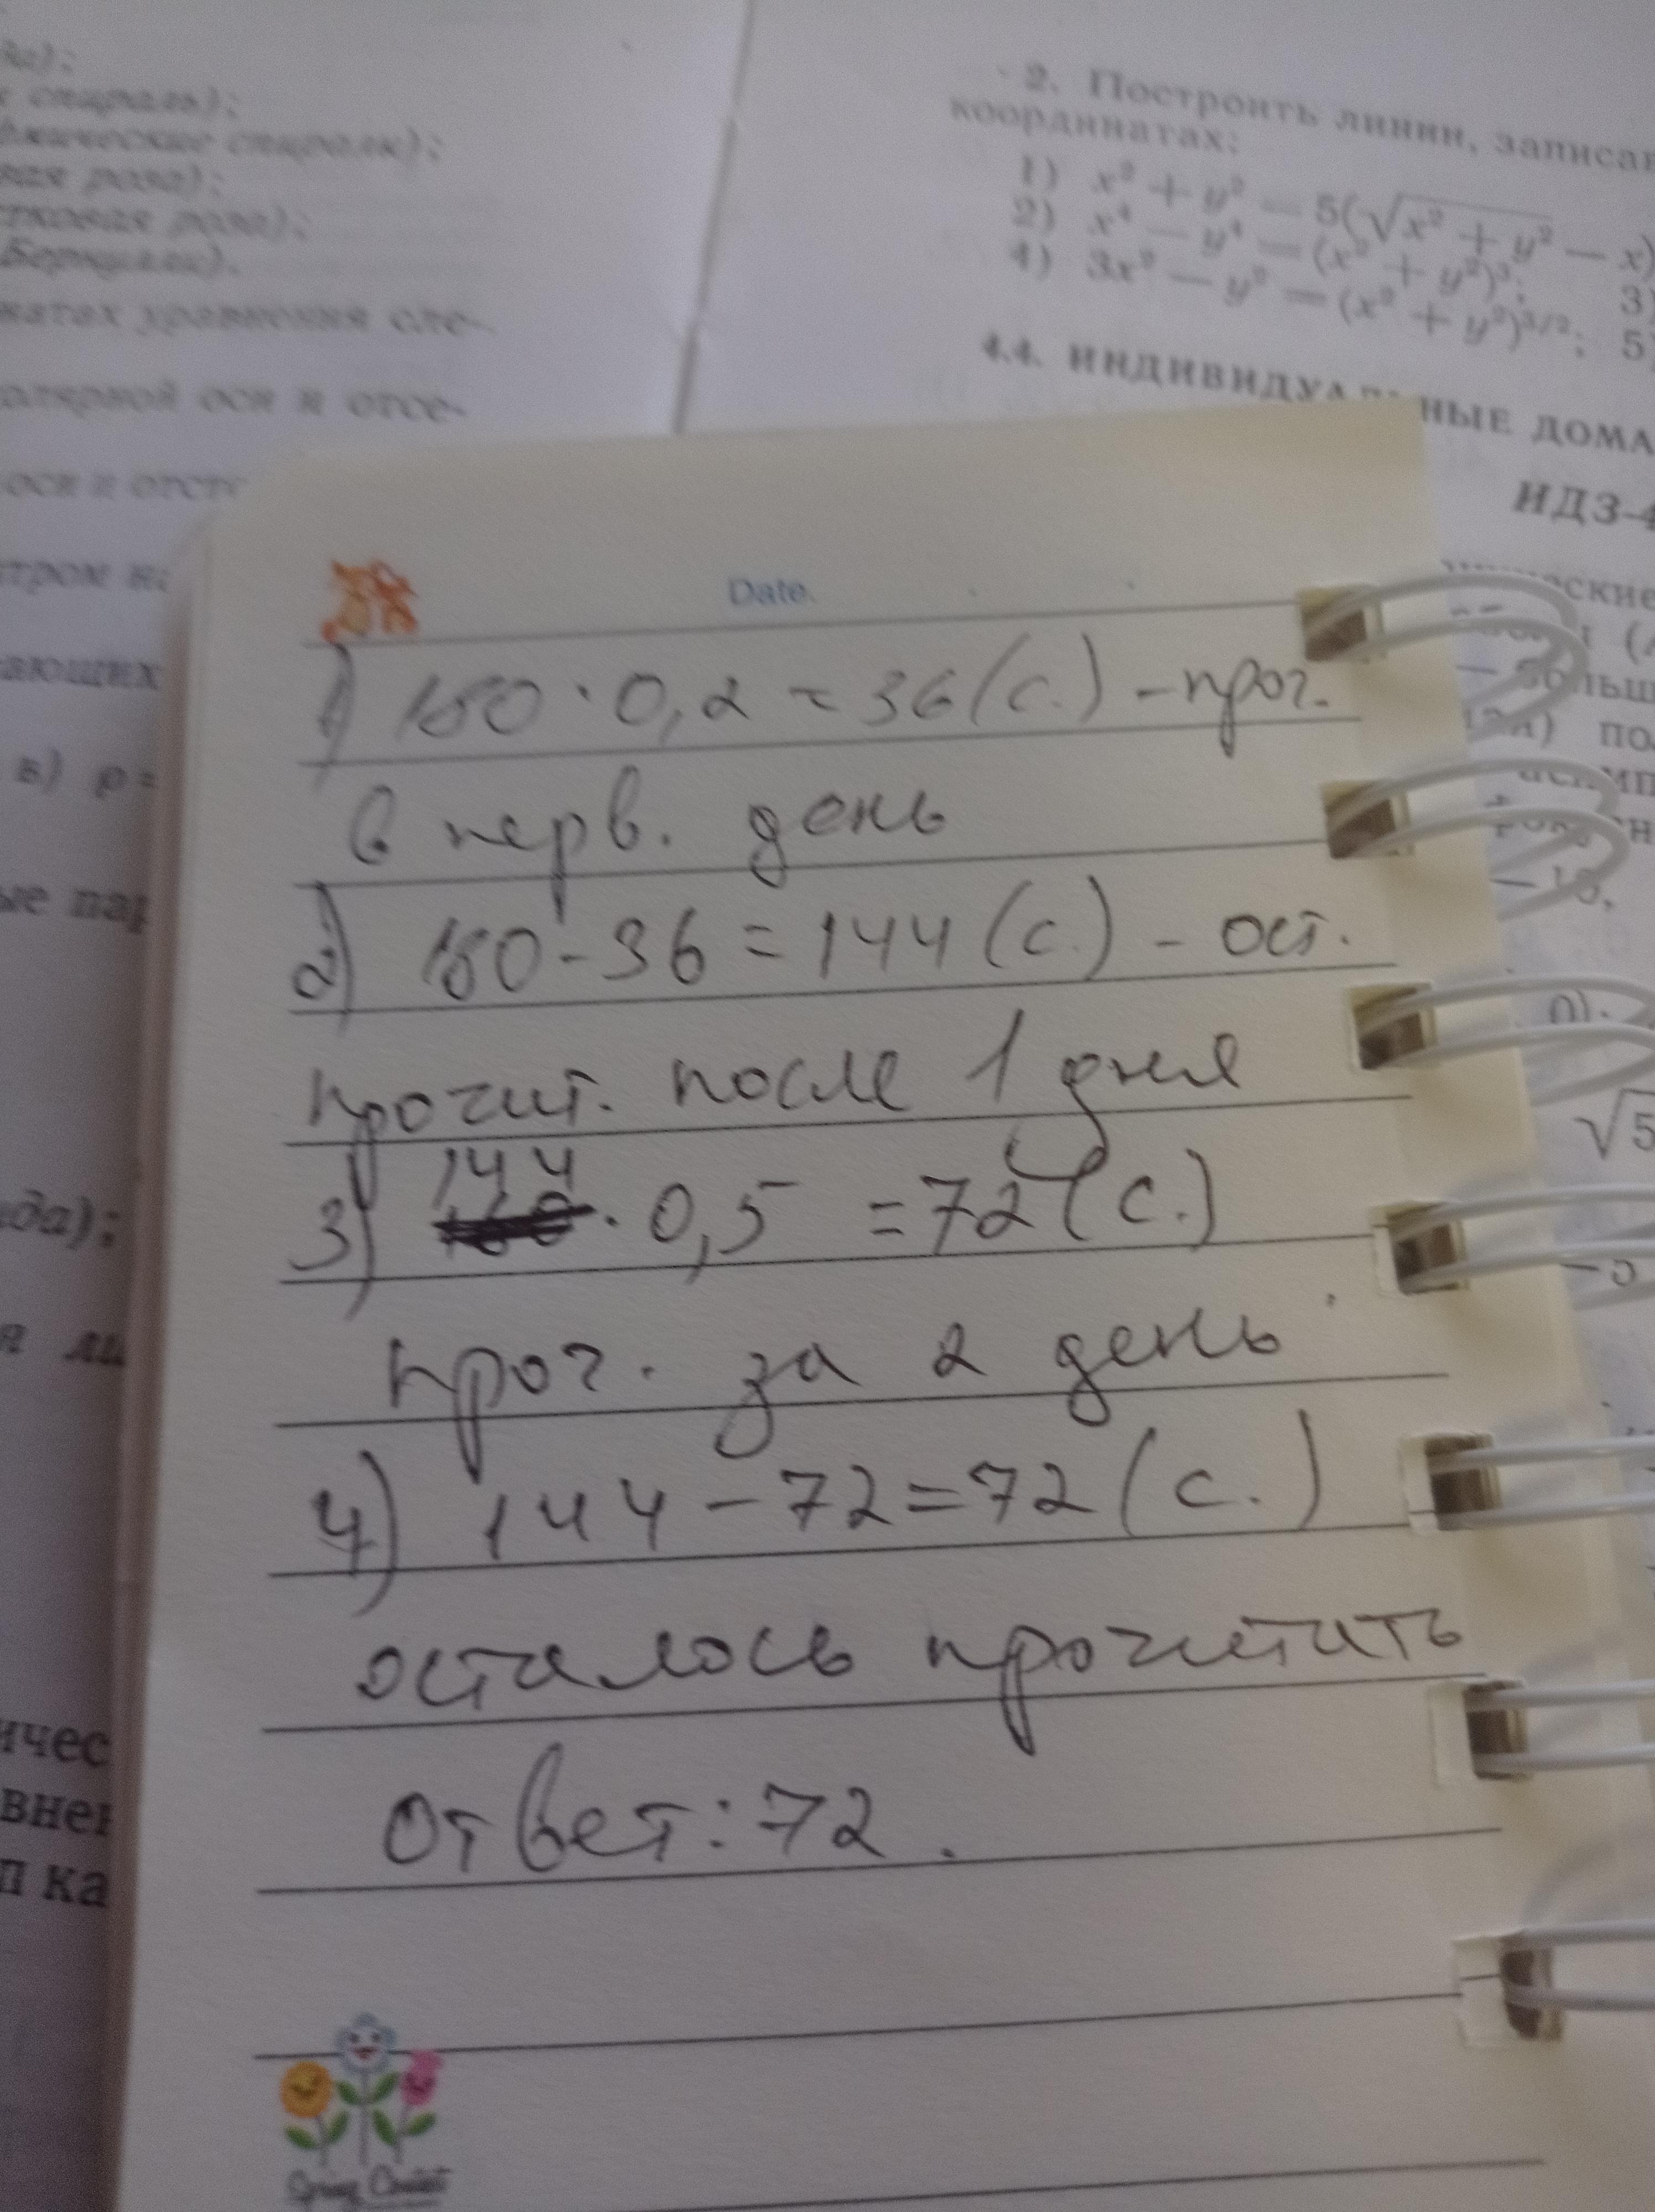 да);
спираль);
фмические спирали);
вая роза);
стковая роза);
Бернулли).
натах уравнения сле-
олярной оси и отсе-
оси и отсе
тром на
ающих
в) ρ =
ые пар
да);
я ли
ичес
внен
п ка
2. Построить линии, записан
координатах:
1) x² + y² = 5(√x² + y² − x)
2) x⁴ − y⁴ = (x² + y²)³; 3)
4) 3x² − y² = (x² + y²)³/²; 5)
4.4. ИНДИВИДУАЛЬНЫЕ ДОМА
ИДЗ-4
ские
больш
по
√5
Date.
1) 180 · 0,2 = 36 (с.) - проч.
в перв. день
2) 180 - 36 = 144 (с.) - ост.
прочит. после 1 дня
3) 144 · 0,5 = 72 (с.)
проч. за 2 день
4) 144 - 72 = 72 (с.)
осталось прочитать
Ответ: 72.
Spring Comes